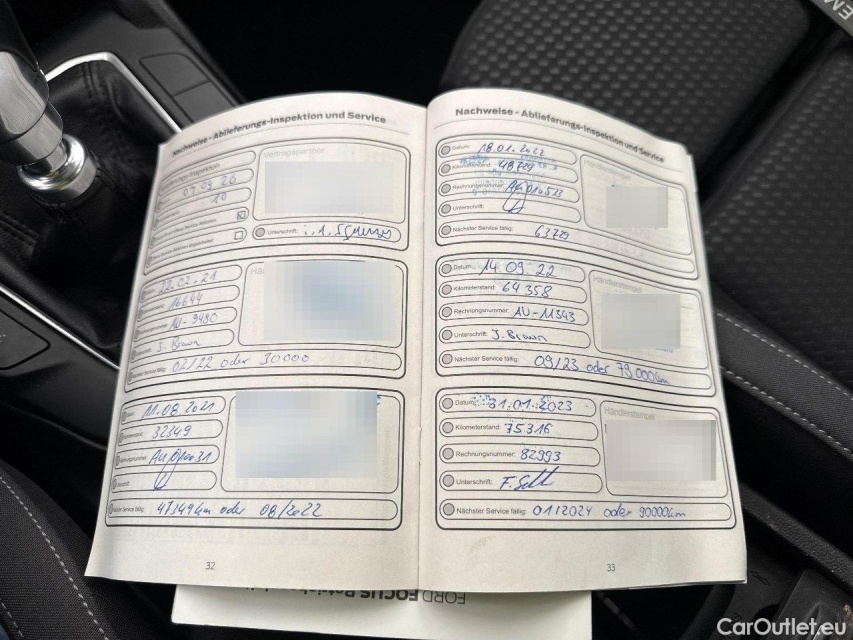 Nachweise - Ablieferungs-Inspektion und Service
07.09.20
10
Vertragspartner
Unterschrift:
22.02.21
16644
AU-9480
J. Brown
Nächster Service fällig: 02/22 oder 30000
11.08.2021
32349
Unterschrift:
Nächster Service fällig: 47349km oder 08/2022
32
Nachweise - Ablieferungs-Inspektion und Service
Datum: 18.01.2022
Händlerstempel
Kilometerstand: 48729
Rechnungsnummer:
Unterschrift:
Nächster Service fällig: 63729
Datum: 14.09.22
Händlerstempel
Kilometerstand: 64358
Rechnungsnummer: AU-11343
Unterschrift: J. Brown
Nächster Service fällig: 09/23 oder 79000km
Datum: 31.01.2023
Händlerstempel
Kilometerstand: 75316
Rechnungsnummer: 82993
Unterschrift:
Nächster Service fällig: 01/2024 oder 90000km
33
FORD FOCUS
CarOutlet.eu